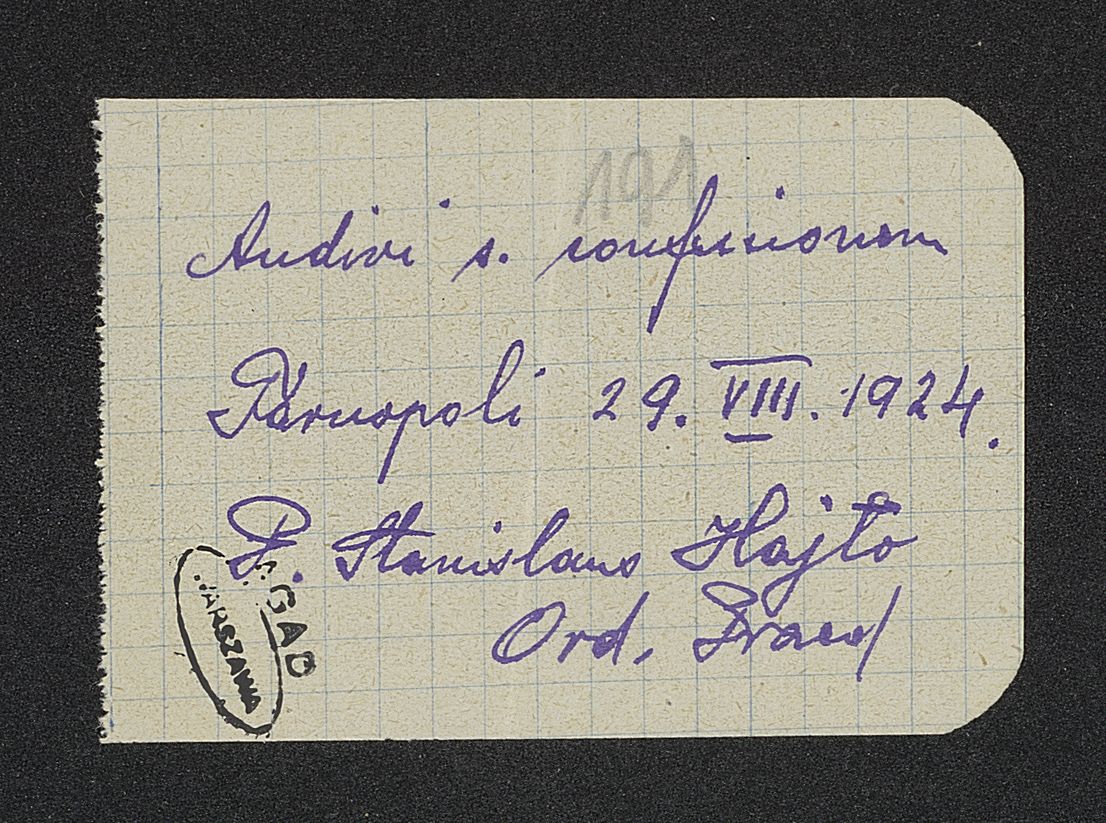 191
Audivi s. confessionem
Tarnopoli 29. VIII. 1924.
P. Stanislaus Hajto
Ord. Praed
AGAD
WARSZAWA